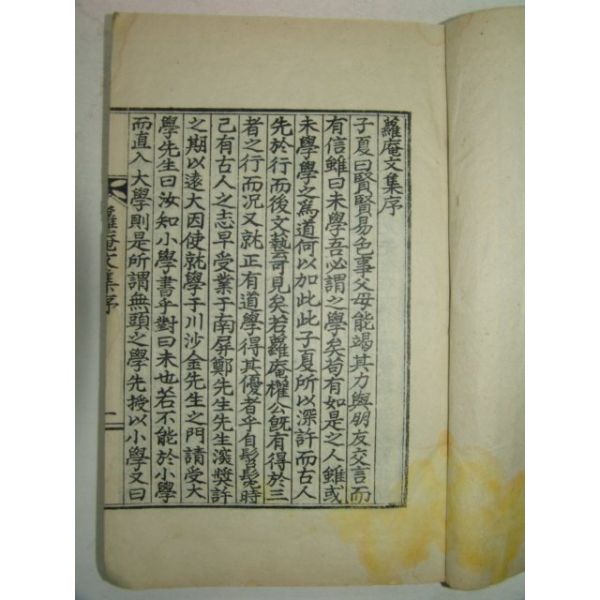 蘿庵文集序
子夏曰賢賢易色事父母能竭其力與朋友交言而
有信雖曰未學吾必謂之學矣苟有如是之人雖或
未學學之爲道何以加此此子夏所以深許而古人
先於行而後文藝可見矣若蘿庵權公旣有得於三
者之行而況又就正有道學得其優者乎自髫髦時
已有古人之志早受業于南屏鄭先生先生滾獎許
之期以遠大因使就學于川沙金先生之門請受大
學先生曰汝知小學書乎對曰未也若不能於小學
而直入大學則是所謂無頭之學先授以小學又曰
蘿庵文集序
一